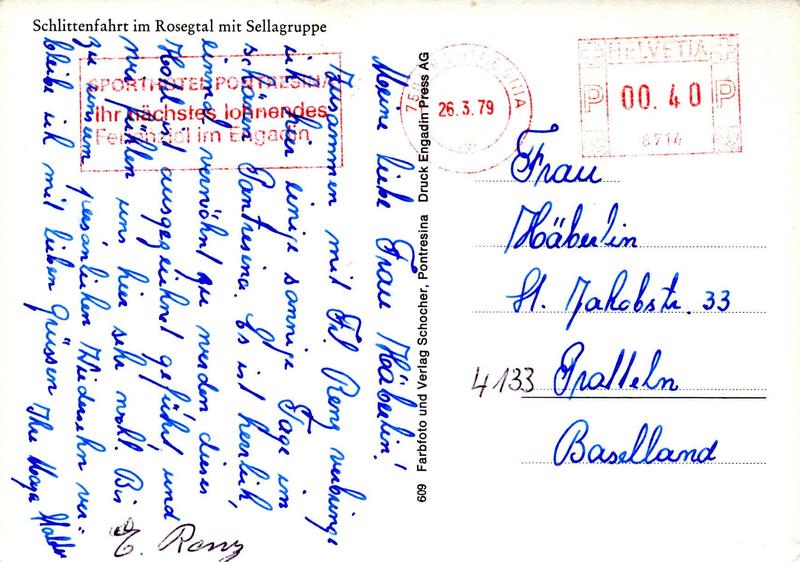 Schlittenfahrt im Rosegtal mit Sellagruppe
SPORTHOTEL PONTRESINA
Ihr nächstes lohnendes
Ferienziel im Engadin
PONTRESINA
26.3.79
HELVETIA
P 00.40 P
6714
Meine liebe Frau Häberlin!
Zusammen mit Frl. Renz verbringe
ich hier einige sonnige Tage im
schönen Pontresina. Es ist herrlich,
einmal verwöhnt zu werden dieses
Hotel ist ausgezeichnet geführt und
wir fühlen uns hier sehr wohl. Bis
zu unserem persönlichen Wiedersehn ver-
bleibe ich mit lieben Grüssen Ihre
E. Renz
609 Farbfoto und Verlag Schocher, Pontresina Druck Engadin Press AG
Frau
Häberlin
St. Jakobstr. 33
4133 Pratteln
Baselland